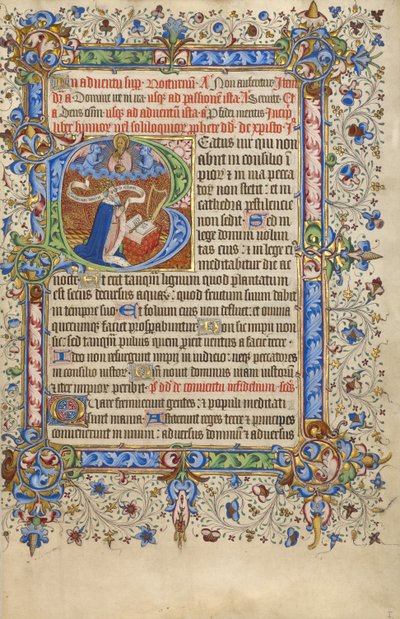 In aduentu sup. Nocturnum. A Non auferetur. Item
a. Domine usq; ad passionē ista. a Seruite. Et
a usq; ad aduentū ista. a fidei meritis. Incip
liber hymnor uel soliloquior pphete dd. de xpisto.
Beatus uir qui non
abiit in consilio ī
pior et in uia pecca
tor non stetit: et in
cathedra pestilencie
non sedit. Sed in
lege domini uolun
tas eius: et in lege ei
meditabitur die ac
nocte. Et erit tanqm lignum quod plantatum
est secus decursus aquar: quod fructum suum dabit
in tempore suo. Et folium eius non defluet: et omnia
quecunq; faciet prospabuntur. Non sic impii non
sic: sed tanqm puluis quem proicit uentus a facie terre.
Ideo non resurgunt impii in iudicio: neq; peccatores
in consilio iustor. Qm nouit dominus uiam iustorum:
et iter impior peribit. dd de
Quare fremuerunt gentes: et populi meditati
sunt inania. Astiterunt reges terre et principes
conuenerunt in unum: aduersus dominum et aduersus